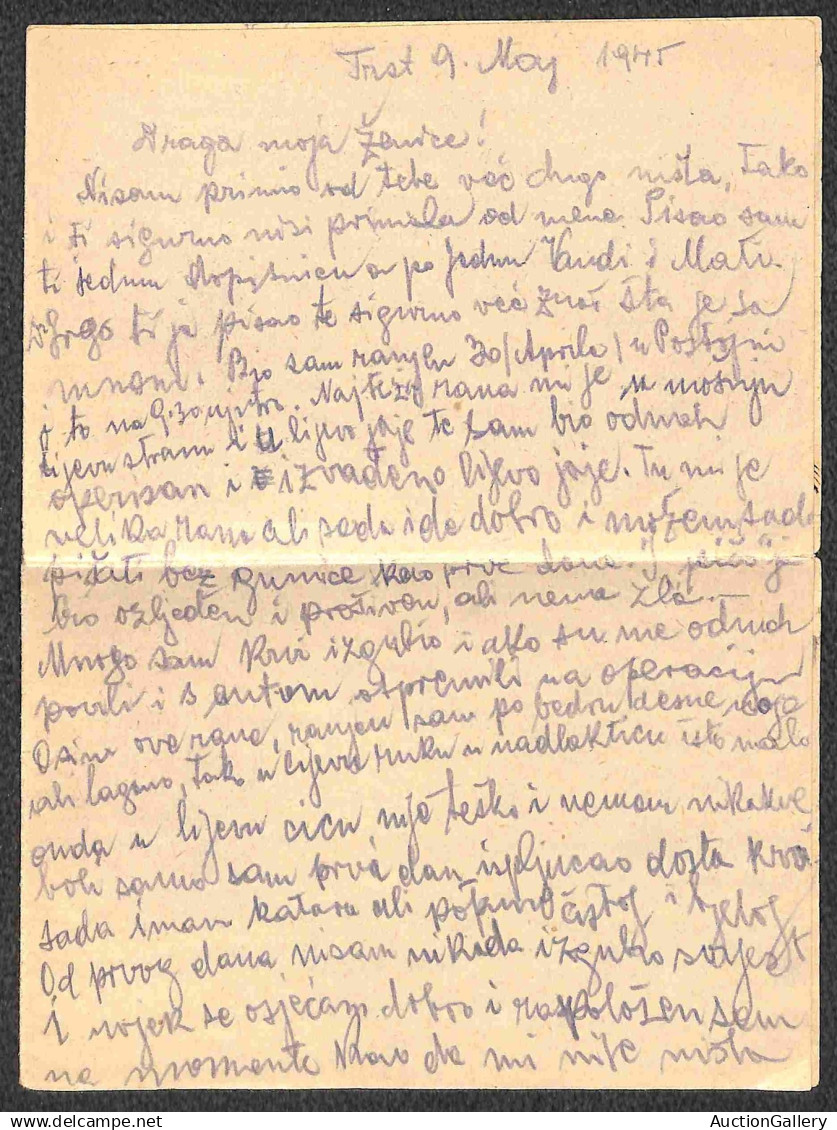 Trst 9. Maj 1945
Draga moja Ženice!
Nisam primio od tebe već dugo ništa, Tako
i ti sigurno nisi primila od mene. Pisao sam
ti jednu dopisnicu a po jednu Vandi i Mati.
ti ja pisao te sigurno već znaš šta je sa
mnom. Bio sam ranjen 30/Aprila/ u Postojni
i to na 9.30 ujutro. Najteža rana mi je u mošnju
lijevu stranu i u lijevo jaje te sam bio odmah
operisan i izvađeno lijevo jaje. Tu mi je
velika rana ali sada ide dobro i možem sada
pišati bez gumice kao prve dana. I
bio ozljeđen i prošiven, ali nema zla. —
Mnogo sam krvi izgubio i ako su me odmah
i s autom otpremili na operaciju
Osim ove rane, ranjen sam po bedru desne noge
ali lagano, Tako u lijevu ruku u nadlakticu isto malo
onda u lijevu cicu, nije teško i nemam nikakve
boli samo sam prvi dan ispljucao dosta krvi
sada imam katara ali potpuno čistog i bjelog
Od prvog dana nisam nikada izgubio svjest
I uvjek se osjećam dobro i raspoložen sam
na momente kao da mi nije ništa
AuctionGallery